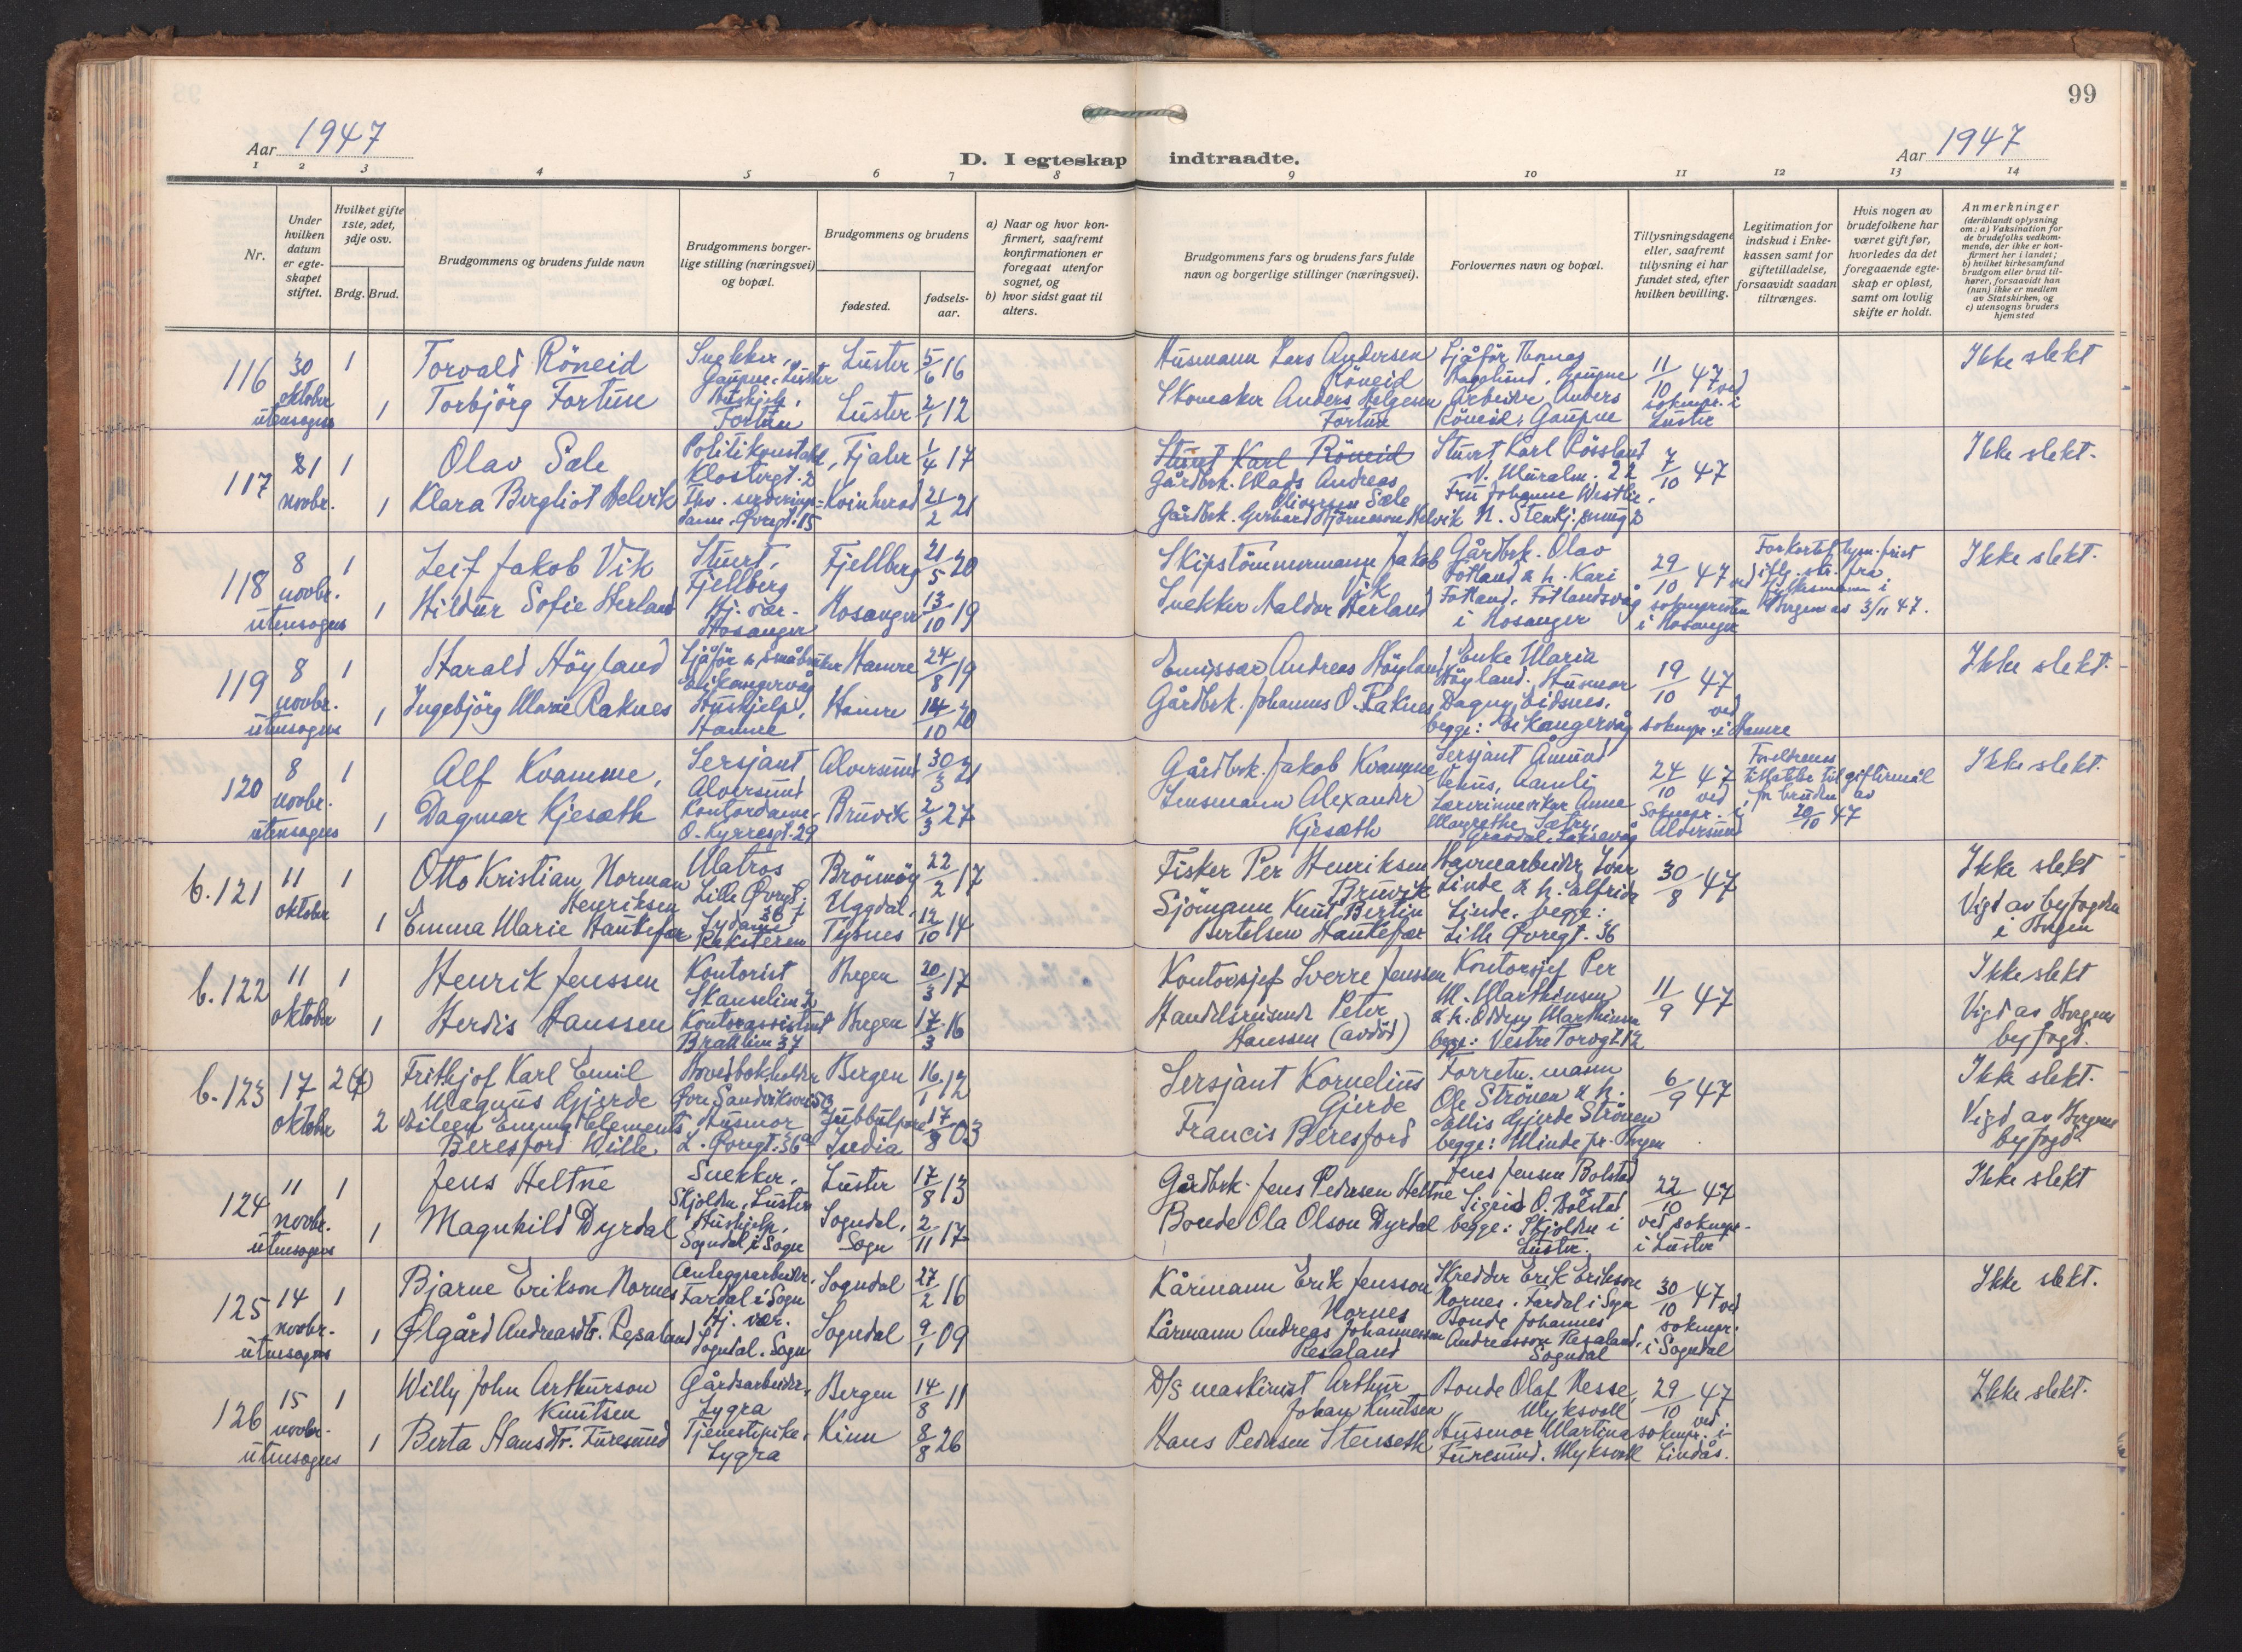 99
Aar 1947
D. I egteskap indtraadte.
Aar 1947
1 2 3 4 5 6 7 8 9 10 11 12 13 14
Nr.
Under hvilken datum er egte-skapet stiftet.
Hvilket gifte 1ste, 2det, 3dje osv.
Brdg. Brud.
Brudgommens og brudens fulde navn
Brudgommens borger-lige stilling (næringsvei) og bopæl.
Brudgommens og brudens
fødested.
fødsels-aar.
a) Naar og hvor kon-firmert, saafremt konfirmationen er foregaat utenfor sognet, og
b) hvor sidst gaat til alters.
Brudgommens fars og brudens fars fulde navn og borgerlige stillinger (næringsvei).
Forlovernes navn og bopæl.
Tillysningsdagene eller, saafremt tillysning ei har fundet sted, efter hvilken bevilling.
Legitimation for indskud i Enke-kassen samt for giftetilladelse, forsaavidt saadan tiltrænges.
Hvis nogen av brudefolkene har været gift før, hvorledes da det foregaaende egte-skap er opløst, samt om lovlig skifte er holdt.
Anmerkninger
(deriblandt oplysning om: a) Vaksination for de brudefolks vedkom-mende, der ikke er kon-firmert her i landet; b) hvilket kirkesamfund brudgom eller brud til-hører, forsaavidt han (hun) ikke er medlem av Statskirken, og c) utensogns bruders hjemsted
116 30 oktober utensogns 1 Torvald Röneid Snekker, Gaupne, Luster Luster 5/6 16 Husmann Lars Andersen Röneid Sjåför Thomas Gaupne 11/10 47 ved soknepr. i Luster Ikke slekt
1 Torbjörg Fortun Hushjelp, Fortun Luster 2/1 12 Skomaker Anders Helgesen Fortun Arbeider Anders Röneid, Gaupne
117 1 novbr. 1 Olav Sæle Politikonstabel, Klostergt. 2 Fjaler 1/4 17 Stuert Karl Röneid Gårdbrk. Mads Andreas Oliversen Sæle Stuert Karl Rössland N. Muralm. 22 7/10 47 Ikke slekt.
1 Klara Bergliot Helvik Øvregt. 15 Kvinherad 21/2 21 Gårdbrk. Gerhard Helvik Fru Johanne Westlie,
118 8 novbr. utensogns 1 Leif Jakob Vik Stuert, Fjellberg Fjellberg 21/5 20 Skipstömmermann Jakob Vik Gårdbrk. Olav Fotland & h. Kari Fotland, Fotlandsvåg i Hosanger 29/10 47 ved soknepresten i Hosanger Forkortet lysn. frist iflg. skr. fra fylkesmannen i Bergen av 3/11 47. Ikke slekt.
1 Hildur Sofie Herland Hj. vær. Hosanger Hosanger 13/10 19 Snekker Haldor Herland
119 8 novbr. utensogns 1 Harald Höyland Sjåför & småbruker Eikangervåg Hamre 24/8 19 Emissær Andreas Höyland Enke Maria Höyland. Husmor Dagny Eidsnes, begge: Eikangervåg 19/10 47 ved soknepr. i Hamre Ikke slekt.
1 Ingebjörg Marie Raknes Hushjelp, Hamre Hamre 14/10 20 Gårdbrk. Johannes O. Raknes
120 8 novbr. utensogns 1 Alf Kvamme, Sersjant Alversund Alversund 30/3 21 Gårdbrk. Jakob Kvamme Sersjant Åmund 24/10 47 ved Soknepr. i Alversund Foreldrenes tillatelse til giftermål for bruden av 20/10 47 Ikke slekt.
1 Dagmar Kjesæth Kontordame, O. Kyrresgt. 29 Bruvik 2/3 27 Lensmann Alexander Kjesæth Lærerinnevikar Anne Margrethe Sætre, Laksevåg
b. 121 11 oktober 1 Otto Kristian Norman Henriksen Matros Lille Øvregt. 36 Brönnöy 22/2 17 Fisker Per Henriksen Havnearbeider Ivar Linde & h. Alfrida Linde, begge: Lille Øvregt. 36 30/8 47 Ikke slekt Vigd av byfogden i Bergen
1 Emma Marie Haukefær Uggdal, Tysnes 12/10 14 Sjömann Knut Bertin Bertelsen Haukefær
b. 122 11 oktober 1 Henrik Jenssen Kontorist Skanselien 2 Bergen 20/3 17 Kontorsjef Sverre Jenssen Kontorsjef Per M. Marthinsen & h. Oddny Marthinsen begge: Vestre Torvgt. 12 11/9 47 Ikke slekt Vigd av Bergens byfogd.
1 Herdis Hanssen Kontorassistent Brattlien 37 Bergen 17/3 16 Handelsreisende Peter Hanssen (avdöd)
b. 123 17 oktober 2 (f) Frithjof Karl Emil Magnus Gjerde Hovedbokholder Øvre Sandviksvei 53 Bergen 16/1 12 Sersjant Kornelius Gjerde Forretn. mann Ole Strönen & h. Ellis Gjerde Strönen begge: Minde pr. Bergen 6/9 47 Ikke slekt. Vigd av Bergens byfogd.
2 Eileen Emma Clements Beresford Wille Husmor L. Øvregt. 36a Jubbulpore India 17/8 03 Francis Beresford
124 11 novbr. utensogns 1 Jens Heltne Snekker, Skjolden, Luster Luster 17/8 13 Gårdbrk. Jens Pedersen Heltne Jens Jensen Bolstad & Sigrid O. Bolstad begge: Skjolden i Luster. 22/10 47 ved soknepr. i Luster Ikke slekt
1 Magnhild Dyrdal Hushjelp, Sogndal i Sogn Sogndal, Sogn 2/11 17 Bonde Ola Olson Dyrdal
125 14 novbr. utensogns 1 Bjarne Erikson Nornes Anleggsarbeider, Fardal i Sogn Sogndal 27/2 16 Kårmann Erik Jensson Nornes Skredder Erik Erikson Nornes. Fardal i Sogn 30/10 47 ved soknepr. i Sogndal Ikke slekt.
1 Ølgård Andreasdtr. Resaland Hj. vær. Sogndal, Sogn Sogndal 9/1 09 Kårmann Andreas Johannesson Resaland Bonde Johannes Andreasson Resaland, Sogndal
126 15 novbr. utensogns 1 Willy John Arthurson Knutsen Gårdsarbeider, Lygra Bergen 14/8 11 D/S maskinist Arthur Johan Knutsen Bonde Olaf Nesse, Myksvoll 29/10 47 ved soknepr. i Lindås. Ikke slekt.
1 Berta Hansdtr. Furesund Tjenestepike, Lygra Kinn 8/8 26 Hans Pedersen Stenseth Husmor Martina Furesund. Myksvoll